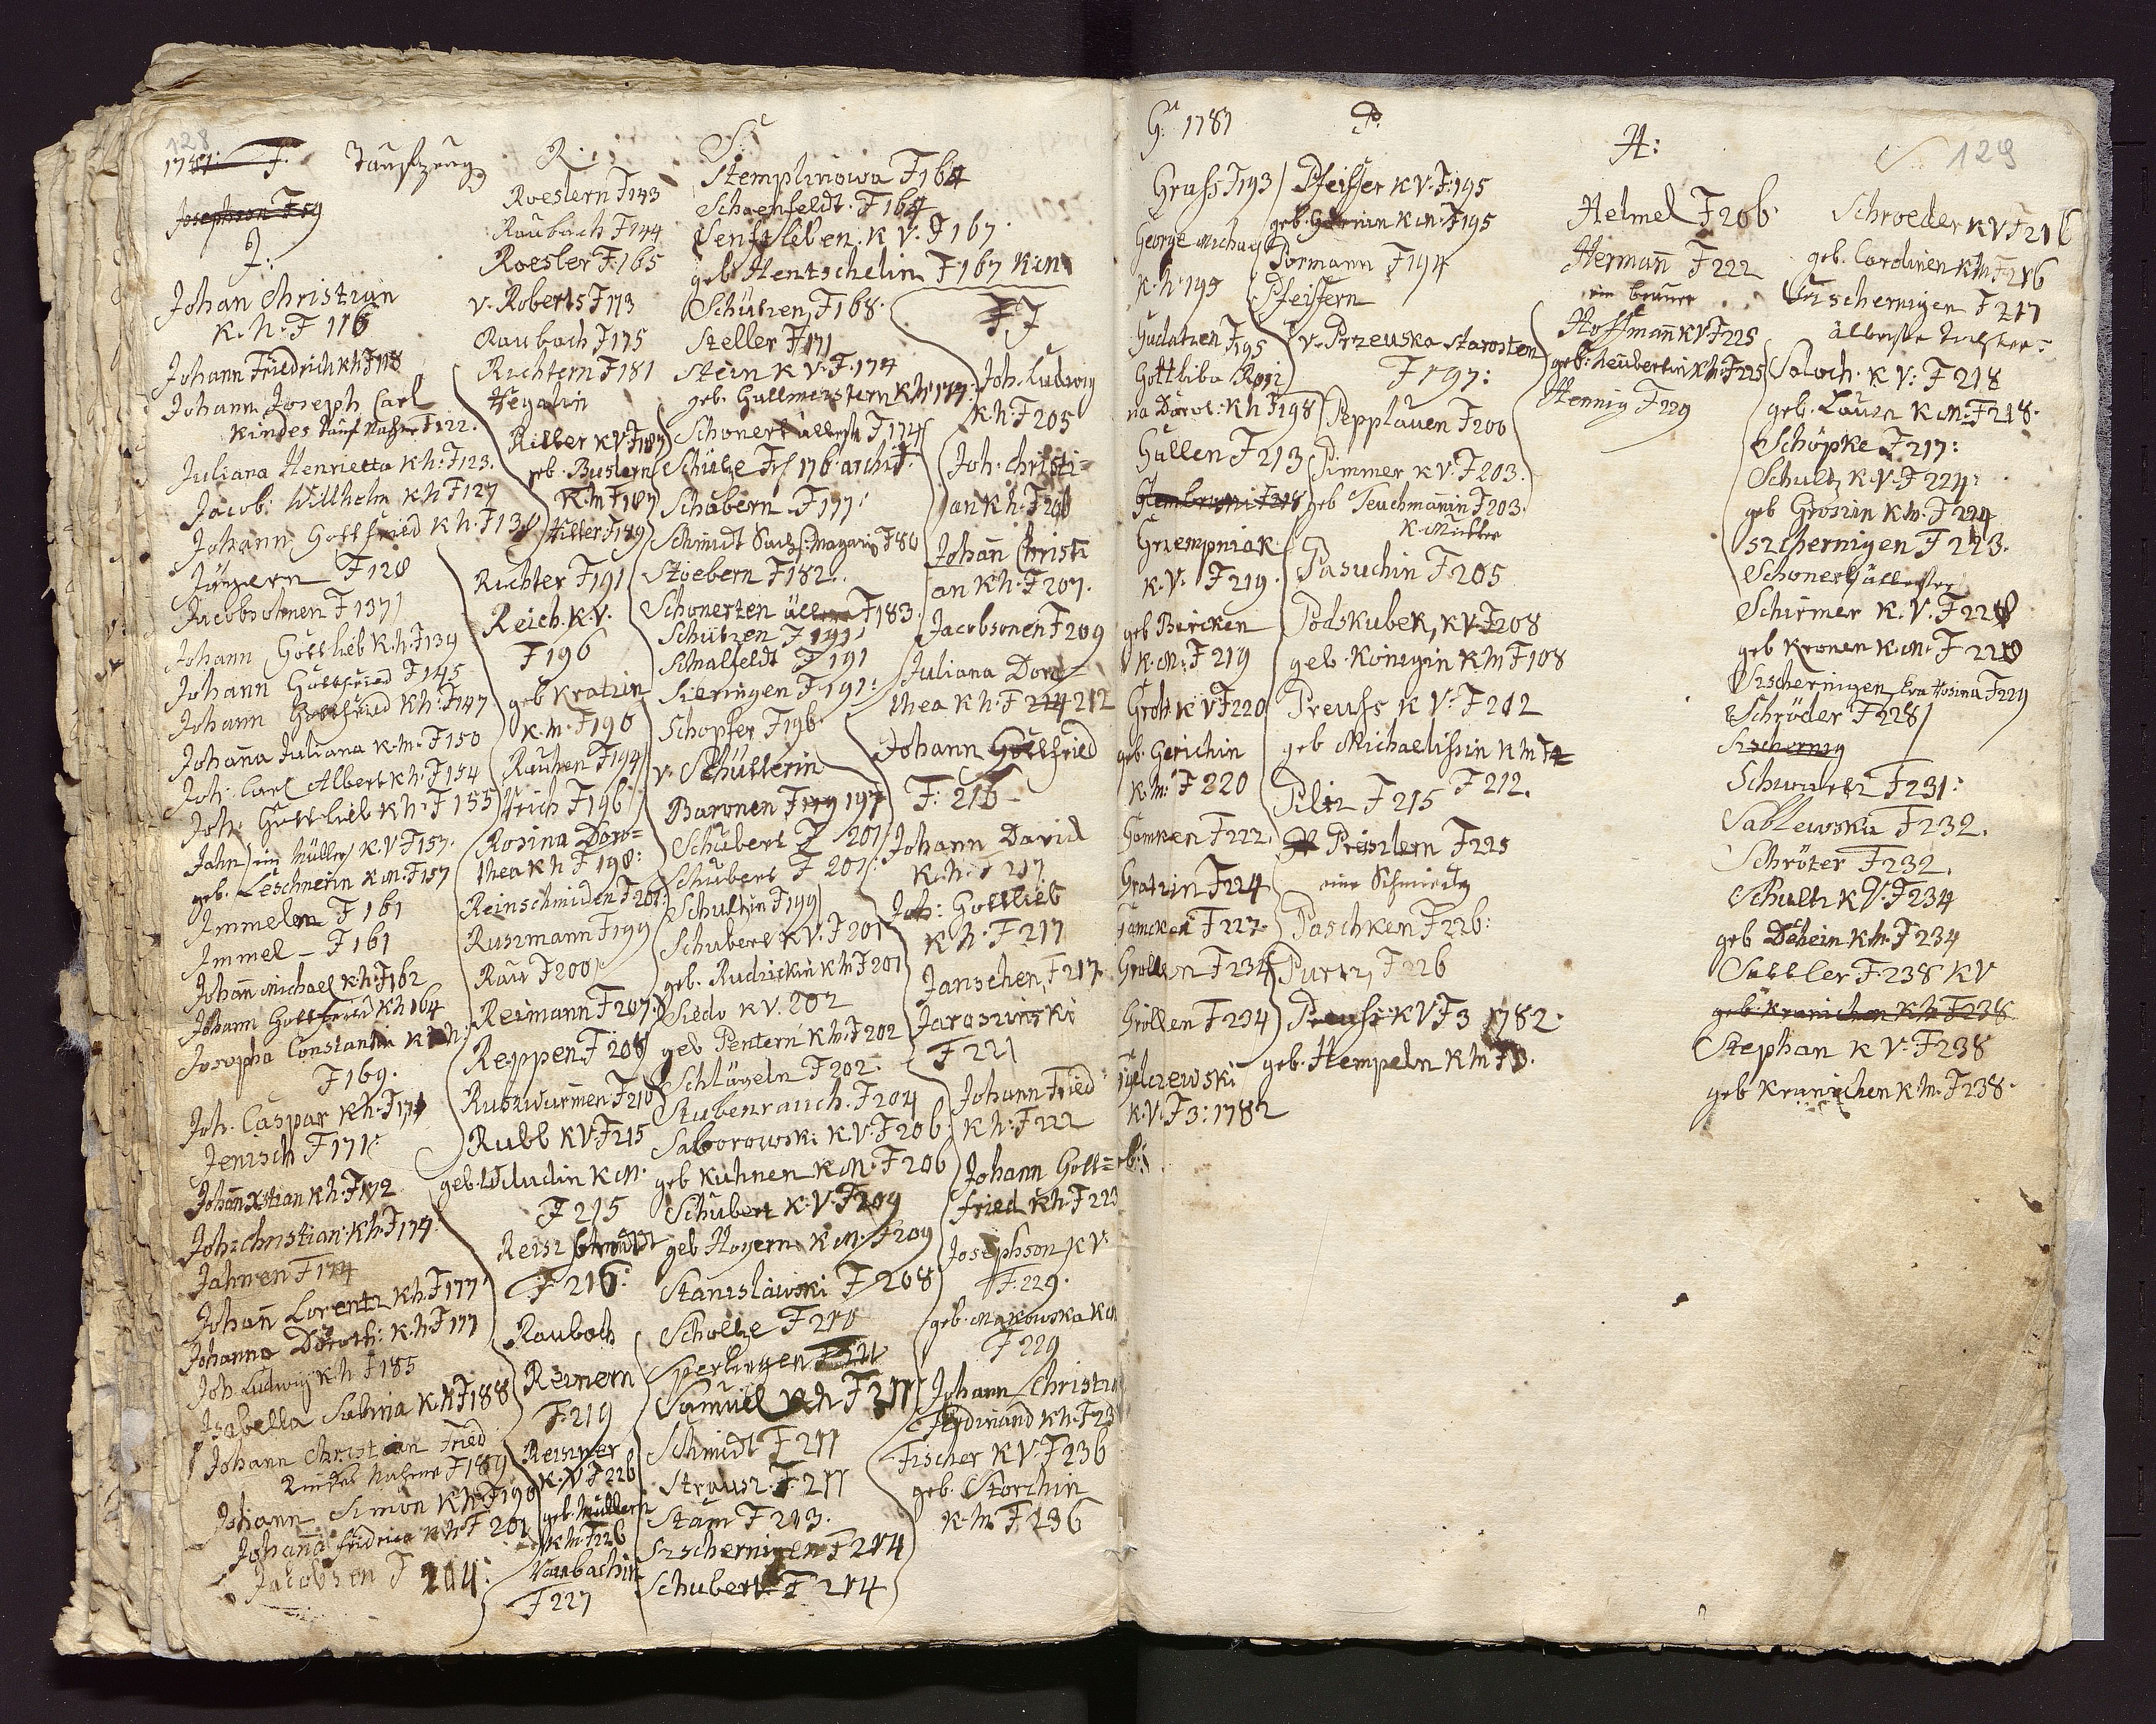 128
1781: J. Taufzeug
Josephson F 59
J:
Johan Christian
K. N. F 116
Johann Friedrich KN F 118
Johann Joseph Carl
Kindes Tauf Nahme F 122.
Juliana Henrietta KN: F 123.
Jacob: Willhelm KN F 127
Johann Gottfried KN. F 130
F 128
Jacobsohnen F 137
Johann Gottlieb K.N. F 139
Johann Gottfried F 145
Johann Gottfried KN: F 147
Johana Juliana K.N. F 150
Joh. Carl Albert KN: F 154
Joh: Gottlieb KN: F 155
Jahn ein Müller K.V F 157.
geb. Leschnerin K.M. F 157
Immelen F 161
Immel F 161
Johann Michael KN: F 162
Johann Gottfried KN 164
Josepha Constantin KN
F 169.
Joh. Caspar KN: F 171
Jenisch F 171:
Johann Xstian KN: F 172
Joh: Christian: KN: F 174:
Jahnen F 174
Johann Lorentz KN. F 177
Johanna Doroth: K.N. F 177
Joh Ludwig K.N. F 185
Isabella Sabina K.N F 188
Johann Christian Fried
Kindes Nahme F 189
Johann Simon KN. F 190
Johana Fridrica KN F 201
Jacobsen F 204:
R:
Roeslern F 143
Raubach F 144
Roesler F 165
v. Roberts F 173
Raubach F 175
Richtern F 181
Ritter KV F 187
geb. Buslern
K.M F 187
Ritter F 189
Richter F 191
Reich K.V.
F 196
geb Kratzin
K.M. F 196
Rauhen F 194
Rosina Doro=
thea KN F 198:
Reinschmiden F 201:
Ruszmann F 199
Rau F 200
Reimann F 207.
Reppen F 208
Ruszwurmen F 210
Rubb KV F 215
geb. Wiludin K.M.
F 215
Reisz
F 216:
Raubach
Reimern
F 219
Reiszner
K.V F 226
geb Müllern
K.M. F 226
Raubachin
F 227
S:
Stemplinowa F 164
Schoenfeldt. F 164
Senftleben. K V. F 167.
geb. Hentschelin F 167 KM
Schützen, F 168.
Steller F 171
Stein K V. F. 174
Schonert F 174
Schabern F 177:
Stoebern F 182.
Schonerten F 183.
Schützen F 191:
Schalfeldt F 191
Sieringen F 191:
Schopfer F 196.
v. Schütterin
Baronen 197
Schubert F 201
Schubert F 201:
Schultin F 199
Schubert KV. F 201
geb. Rudzickin KM F 201
Siedo K V. 202
geb Pentern K M. F 202
Schlägeln F 202.
Stubenrauch. F 204
Saborowski K.V. F 206
geb Kuhnen K.M. F 206
Schubert K.V. F 209
geb Hoyern K.M. F 209
Staniszlawski F 208
Scholtze F 210
Sperlingen F 211
Samuel KN F 211
Schmidt F 211
Strausz. F 211
Stam F 213.
Szschernigen F 214
Schubert F 214
F J
Joh. Ludwig
K.N: F 205
Joh: Christi=
an KN: F 206
Johan Christi
an KN: F 207.
Jacobsonen F 209
Juliana Doro=
thea K.N: F 212
Johann Gottfried
F: 216
Johann David
K.N: F 217
Joh: Gottlieb
K.N: F 217
Janschen, F 217.
Jaroszinski
F 221
Johann Fried
K N: F 222
Johann Gott=
fried KN: F 223
Josephson K V:
F 229.
geb. Makowska KM
F 229
Johann Christi
Ferdinand KN: F 23
Fischer K V. F 236
geb. Storchin
K.M F 236
G: 1781
Gruss F 193
George Michael
K. N: 195
Gudatzen F 195
Gottliba Rosi
na Dorot: KN F 198
Gullen F 213
Grzempniak
K.V. F 219.
geb Bircken
K.M: F 219
Groh K V F 220
geb. Gerichin
K.M: F 220
Gomken F 222.
Gratzin F 224
Gamcken F 227.
Grollen F 234
Grollen F 234
K.V: F 3: 1782
P.
Pfeiffer K V. F. 195
K M. F 195
Pormann F 194
Pfeiffern
v. Przeuska Starosten
F 197:
Pepplauen F 200
Pimmer K V. F 203.
geb Teuchmanin F 203.
K. Mutter
Pasuchin F 205
Podskubek, K V F 208
geb. Königin K M F 108
Preuss K V. F 212
geb Michaelissin K M F
F 212.
Piltz F 215
Priszlern F 225
eine Schmiedn
Paschken F 226:
Purtz, F 226
Preuss. K V F 3 1782.
geb. Hempeln K M F 3.
H:
Helmel F 206.
Hermann F 222
ein Brauer
Hoffmann KV F 225
geb: Neubertin K M F 225
Hennig F 229
129
Schroeder K V F 216
geb. Cardinen K M F 216
Szschernigen F 217
älteste Tochter:
Saloch. K V: F 218
geb. Lausn K M: F 218.
Schöpke F 217:
Schultz K V. F 224:
geb Grosin K M. F 224
Szchernigen F 223.
Schirmer K. V. F 228
geb Kronen K M. F 228
Szschernigen Eva Rosina F 229
Schröder F 228
Szschernig
Schwartz F 231:
Sablewska F 232.
Schröter F 232.
Schultz K V. F 234
geb Dehein K M. F 234
Sattler F 238 KV
geb. Kranichen K M. F 238
Stephan K V. F 238
geb Kranichen K M. F 238.